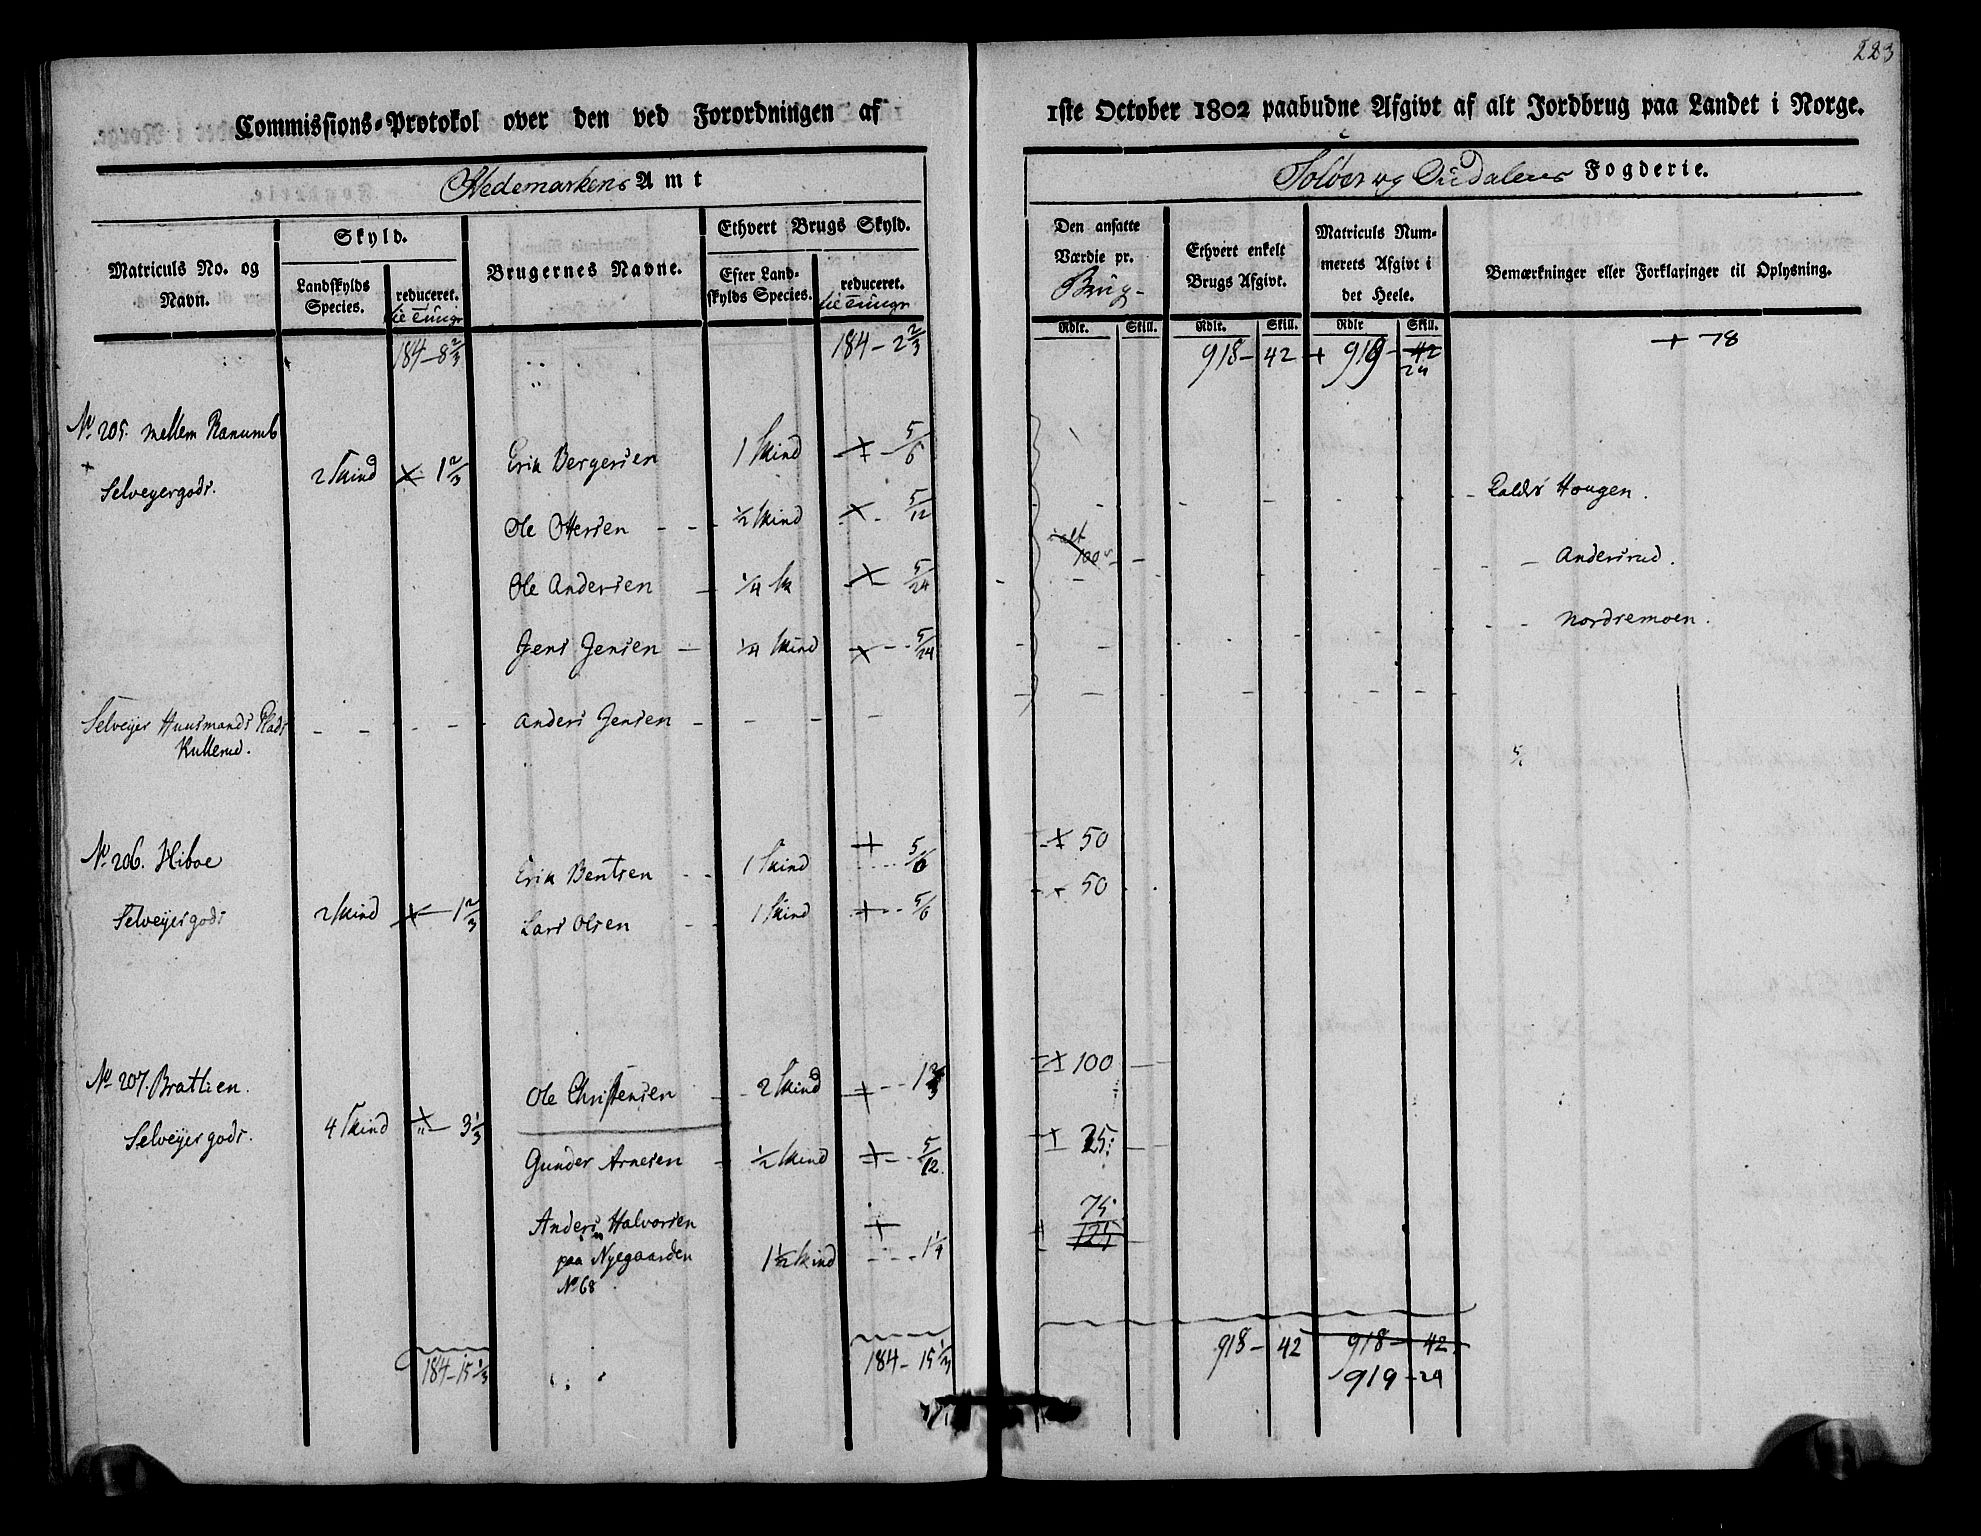 223
Commissions-Protokol over den ved Forordningen af 1ste October 1802 paabudne Afgivt af alt Jordbrug paa Landet i Norge.
Hedemarkens Amt
Soløer og Oudalens Fogderie.
Matriculs No. og Navn.
Skyld.
Landskylds Species.
reduceret.
lie Tungr
Brugernes Navne.
Ethvert Brugs Skyld.
Efter Landskylds Species.
reduceret.
lie Tungr
Den ansatte Værdie pr.
Brug
Ethvert enkelt Brugs Afgivt.
Matriculs Nummerets Afgivt i det Heele.
Bemærkninger eller Forklaringer til Oplysning.
Rdlr. Skill. Rdlr. Skill. Rdlr Skill.
184 - 8 2/3 184 - 2 2/3 918 - 42 + 919 - 42 + 78
24
No 205. mellem Ranumb
Selveyergods. 2 Skind 1 2/3 Erik Bergersen 1 Skind 5/6
Ole Ottersen - - 1/2 Skind 5/12 - Kaldes Hougen.
Ole Andersen - 1/4 Sk 5/24 i alt 100 - - Andersrud.
Jens Jensen - 1/4 Skind 5/24 - - Nordremoen.
Selveyer Huusmands Plads - - - - Anders Jensen - - - -
Kullerud.
No 206. Hiboe Erik Bentsen - - 1 Skind 5/6 50
Selveyergods 2 Skind 1 2/3 Lars Olsen - - 1 Skind 5/6 50
No 207. Bratlien. Ole Christensen - - 2 Skind 1 2/3 100
Selveyergods. 4 Skind 3 1/3
Gunder Arnesen - 1/2 Skind 5/12 25
Anders Halvorsen 75
paa Nyegaarden 1 1/2 Skind 1 1/4 125
No 68
184 - 15 1/3 184 - 15 1/3 918 - 42 918 - 42
919 - 24